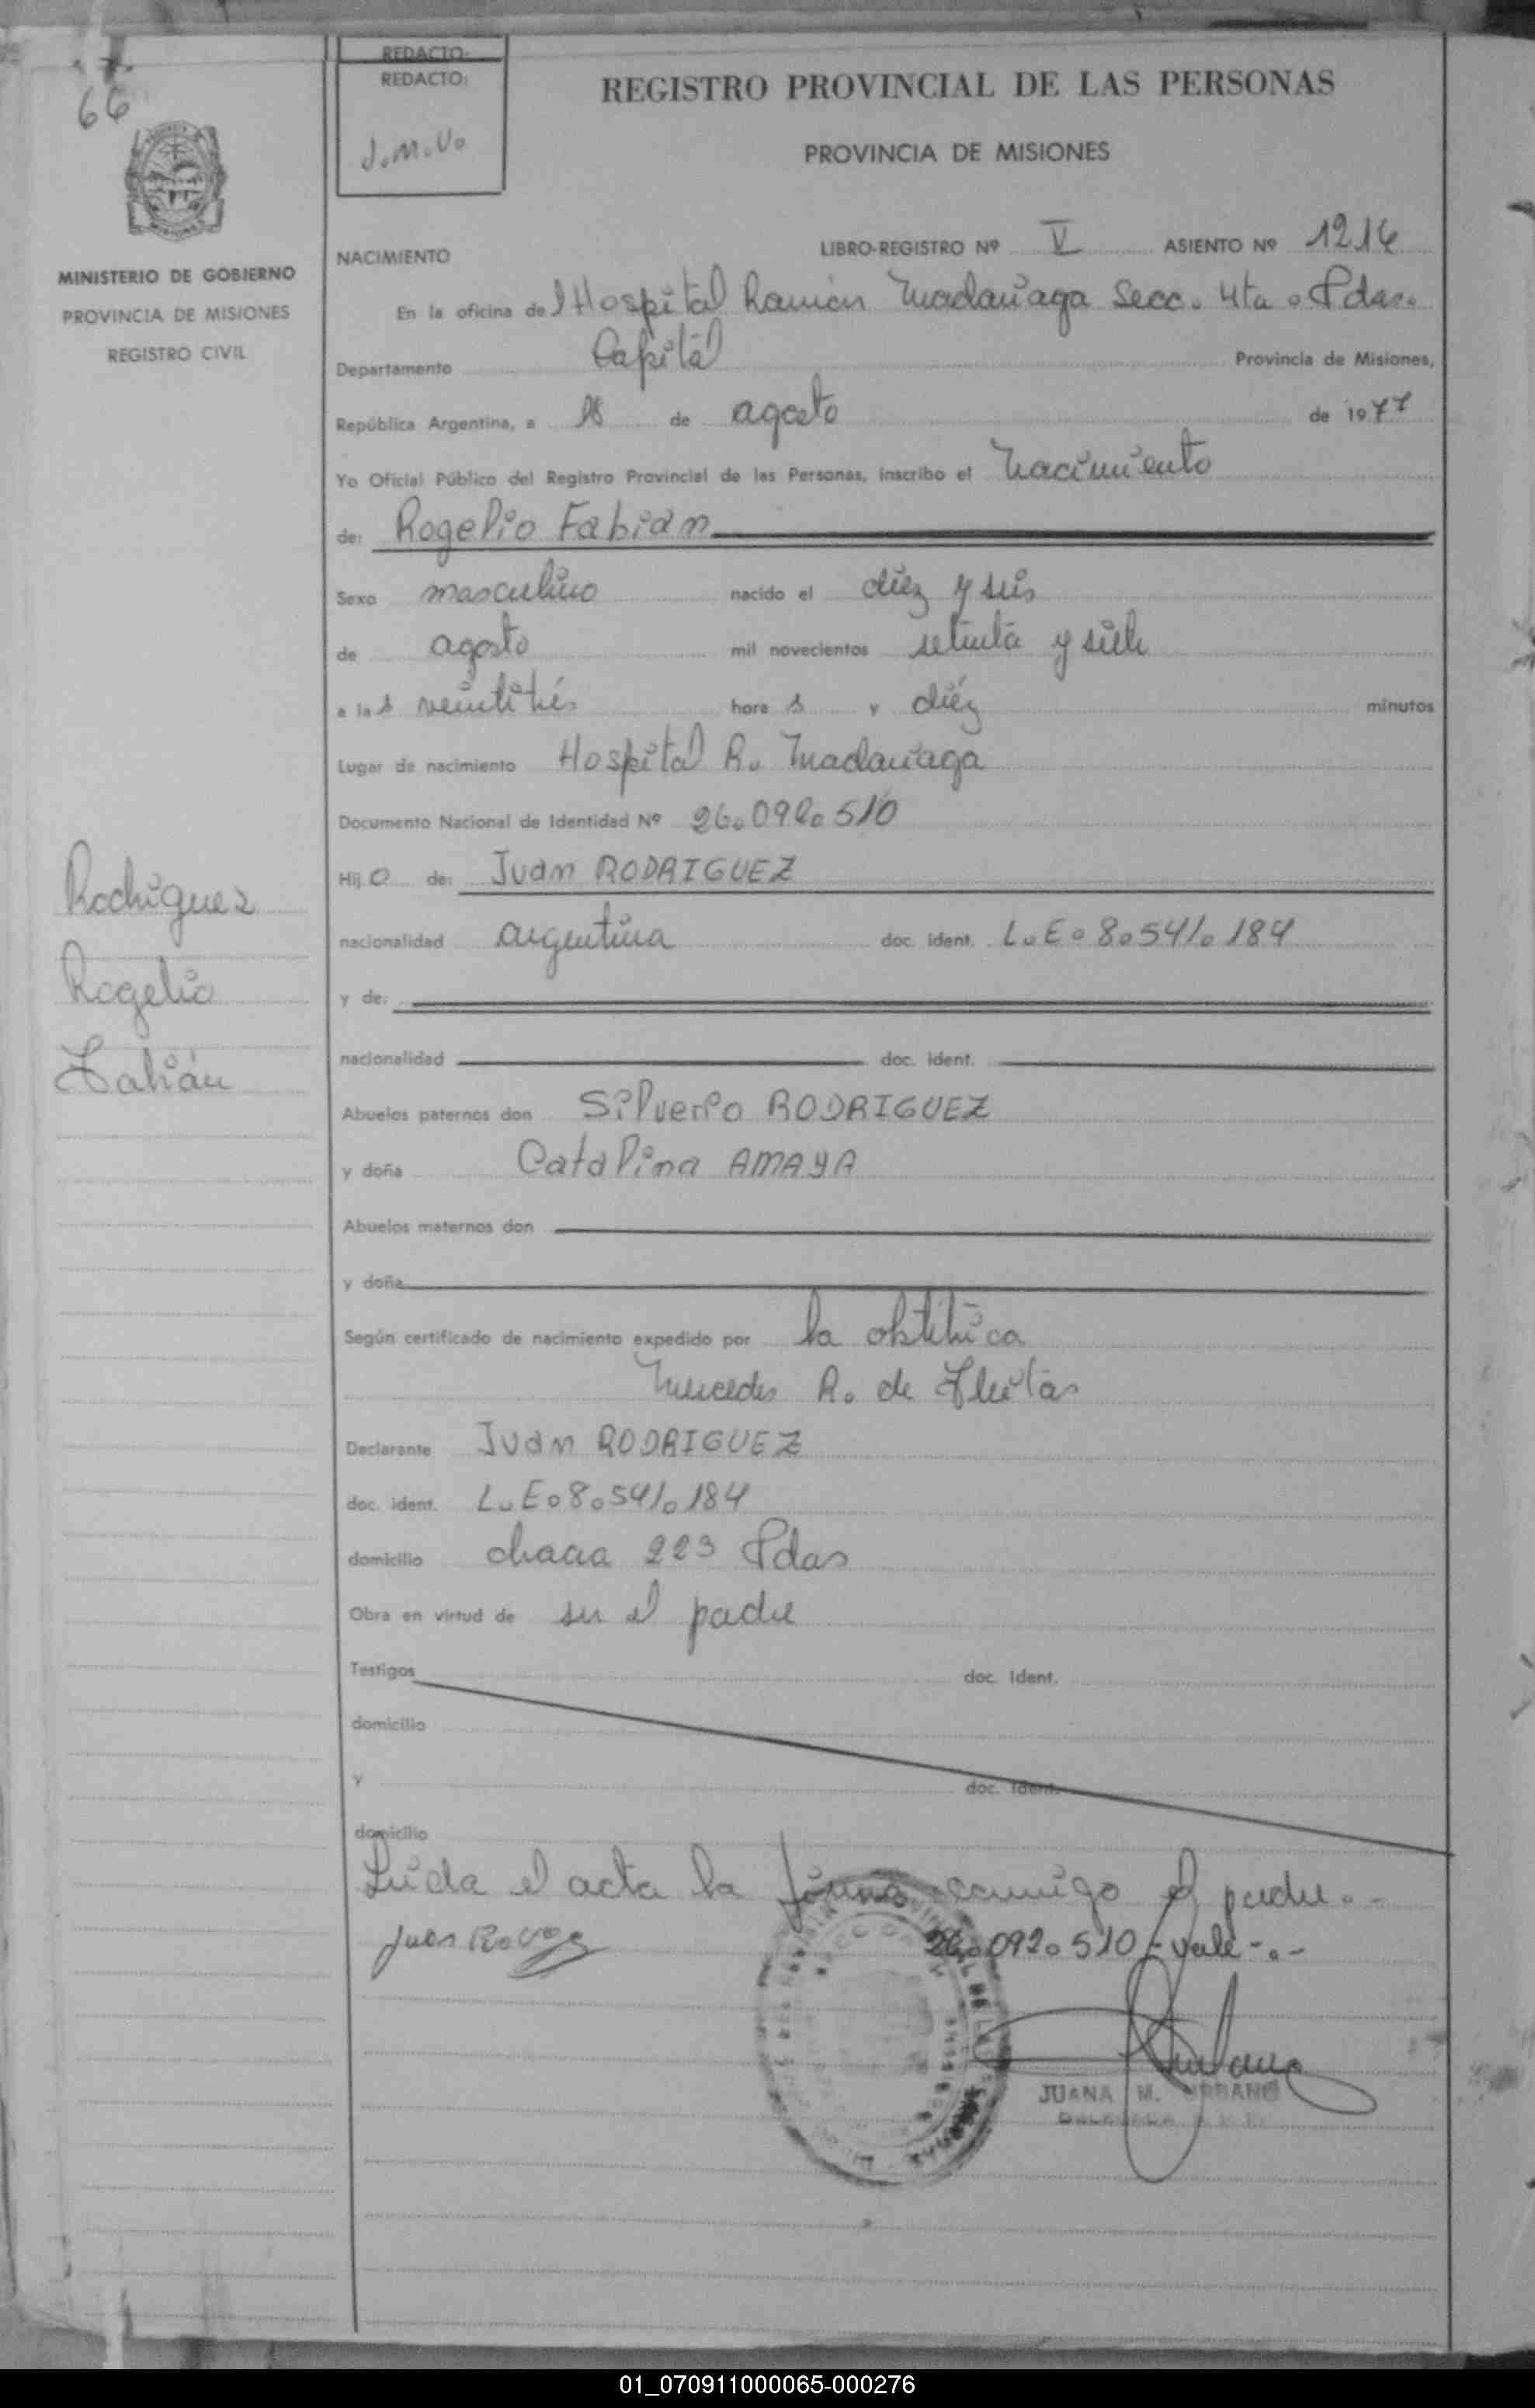 66
MINISTERIO DE GOBIERNO
PROVINCIA DE MISIONES
REGISTRO CIVIL
Rodriguez
Rogelio
Fabián
REDACTO:
REDACTO:
J.M.U.
REGISTRO PROVINCIAL DE LAS PERSONAS
PROVINCIA DE MISIONES
NACIMIENTO LIBRO-REGISTRO Nº V ASIENTO Nº 1216
En la oficina del Hospital Ramón Madariaga Secc. 4ta. Pdas.
Departamento Capital Provincia de Misiones,
República Argentina, a 18 de agosto de 1977
Yo Oficial Público del Registro Provincial de las Personas, inscribo el Nacimiento
de: Rogelio Fabian
Sexo masculino nacido el diez y seis
de agosto mil novecientos setenta y siete
a las veintitrés horas y diéz minutos
Lugar de nacimiento Hospital R. Madariaga
Documento Nacional de Identidad Nº 26.092.510
Hijo de: Juan RODRIGUEZ
nacionalidad argentina doc. ident. L.E. 8.541.184
y de:
nacionalidad doc. ident.
Abuelos paternos don Silverio RODRIGUEZ
y doña Catalina AMAYA
Abuelos maternos don
y doña
Según certificado de nacimiento expedido por la obstétrica
Mercedes R. de Fleitas
Declarante Juan RODRIGUEZ
doc. ident. L.E. 8.541.184
domicilio chacra 223 Pdas
Obra en virtud de ser el padre
Testigos doc. Ident.
domicilio
y doc. Ident.
domicilio
Leida el acta la firma conmigo el padre.-
26.092.510 - vale -.-
JUANA M. URBANO
01_070911000065-000276